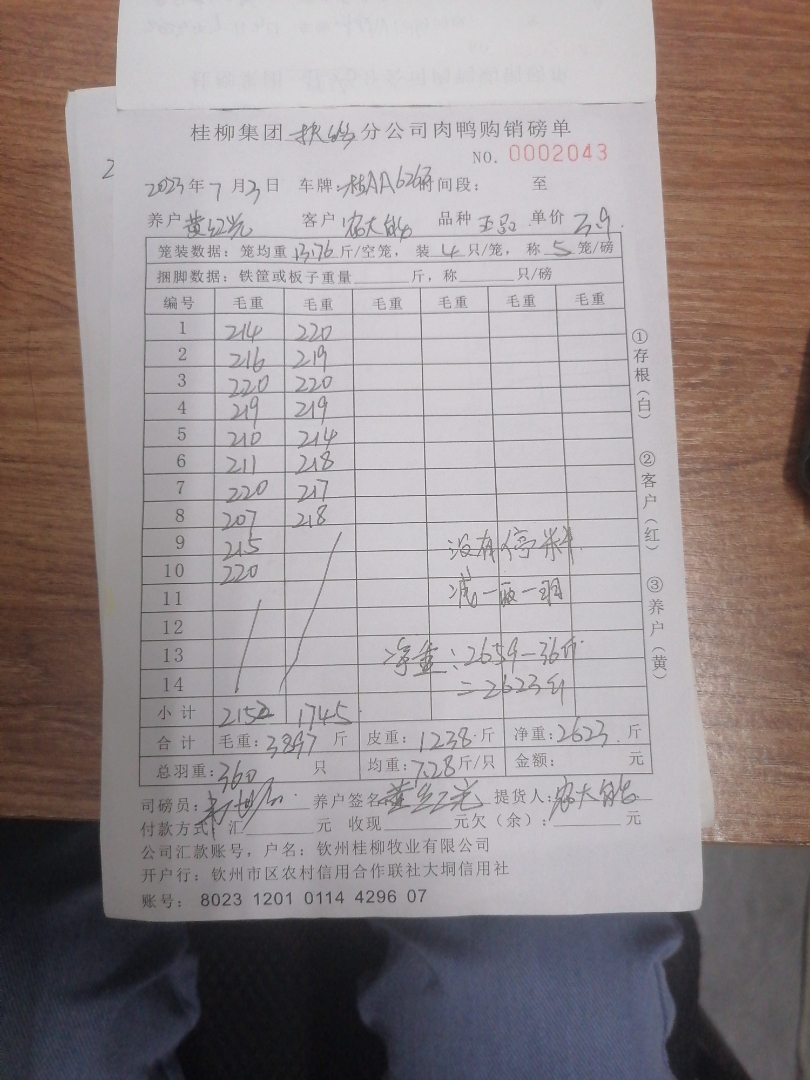 桂柳集团 分公司肉鸭购销磅单
NO. 0002043
2023年7月3日 车牌: 时间段: 至
养户 黄红光 客户 农大能 品种 单价
笼装数据: 笼均重13.76斤/空笼, 装4只/笼, 称5笼/磅
捆脚数据: 铁筐或板子重量 斤, 称 只/磅
编号 毛重 毛重 毛重 毛重 毛重 毛重
1 214 220
2 216 219
3 220 220
4 219 219
5 210 214
6 211 218
7 220 217
8 207 218
9 215
10 220
11
12
13
14
没有停料
减一两一羽
净重: 2659-36斤
=2623斤
小计 2152 1745
合计 毛重: 3897 斤 皮重: 1238 斤 净重: 2623 斤
总羽重: 360 只 均重: 7.28 斤/只 金额: 元
司磅员: 养户签名 黄红光 提货人: 农大能
付款方式: 汇 元 收现 元欠(余): 元
公司汇款账号, 户名: 钦州桂柳牧业有限公司
开户行: 钦州市区农村信用合作联社大垌信用社
账号: 8023 1201 0114 4296 07
①存根(白) ②客户(红) ③养户(黄)